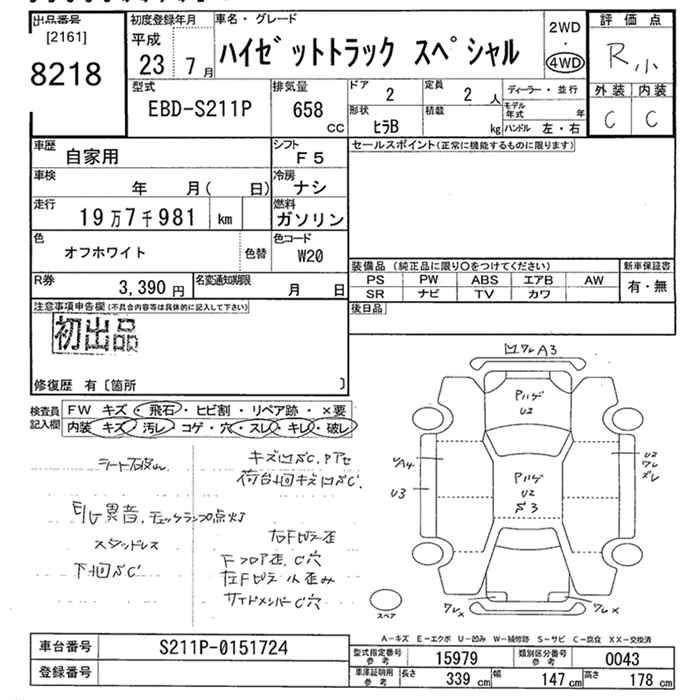 出品番号
[2161]
8218
初度登録年月
平成
23 7月
車名・グレード
ハイゼットトラック スペシャル
2WD
・
4WD
評価点
R小
外装 内装
C C
型式
EBD-S211P
排気量
658
CC
ドア
2
定員
2 人
ディーラー・並行
モデル
年式 年
形状
ヒラB
積載
kg
ハンドル 左・右
車歴
自家用
シフト
F5
セールスポイント(正常に機能するものに限ります)
車検
年 月( 日)
冷房
ナシ
走行
19万7千981 km
燃料
ガソリン
色
オフホワイト
色替
色コード
W20
装備品(純正品に限り〇をつけてください)
新車保証書
PS PW ABS エアB AW
有・無
SR ナビ TV カワ
R券
3,390円
名変通知期限
月 日
後日品
注意事項申告欄(不具合内容等は具体的に記入して下さい)
初出品
修復歴 有〔箇所 〕
検査員
記入欄
FW キズ・飛石・ヒビ割・リペア跡・×要
内装 キズ・汚レ・コゲ・穴・スレ・キレ・破レ
キズ凹サC.Pアセ
荷台廻キズ凹サC.
E/G異音.チェックランプ点灯
スタッドレス
下廻サC
右Fピラー歪
Fフロア歪.C穴
左Fピラー小歪み
サイドメンバーC穴
ワレA3
Pハゲ
U2
UA4
U3
Pハゲ
U2
S3
U2
ワレ
ズレ
ワレX
ワレX
スペア
A-キズ E-エクボ U-凹み W-補修跡 S-サビ C-腐食 XX-交換済
車台番号
S211P-0151724
登録番号
型式指定番号
参考
15979
類別区分番号
参考
0043
車庫証明用
参考
長さ
339 cm
幅
147 cm
高さ
178 cm